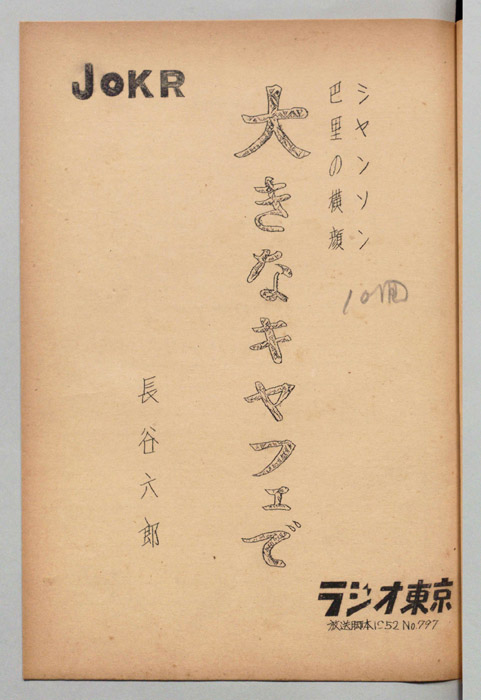 JOKR
シャンソン
巴里の横顔
大きなキャフェで
10冊
長谷六郎
ラジオ東京
放送脚本1952 No.797